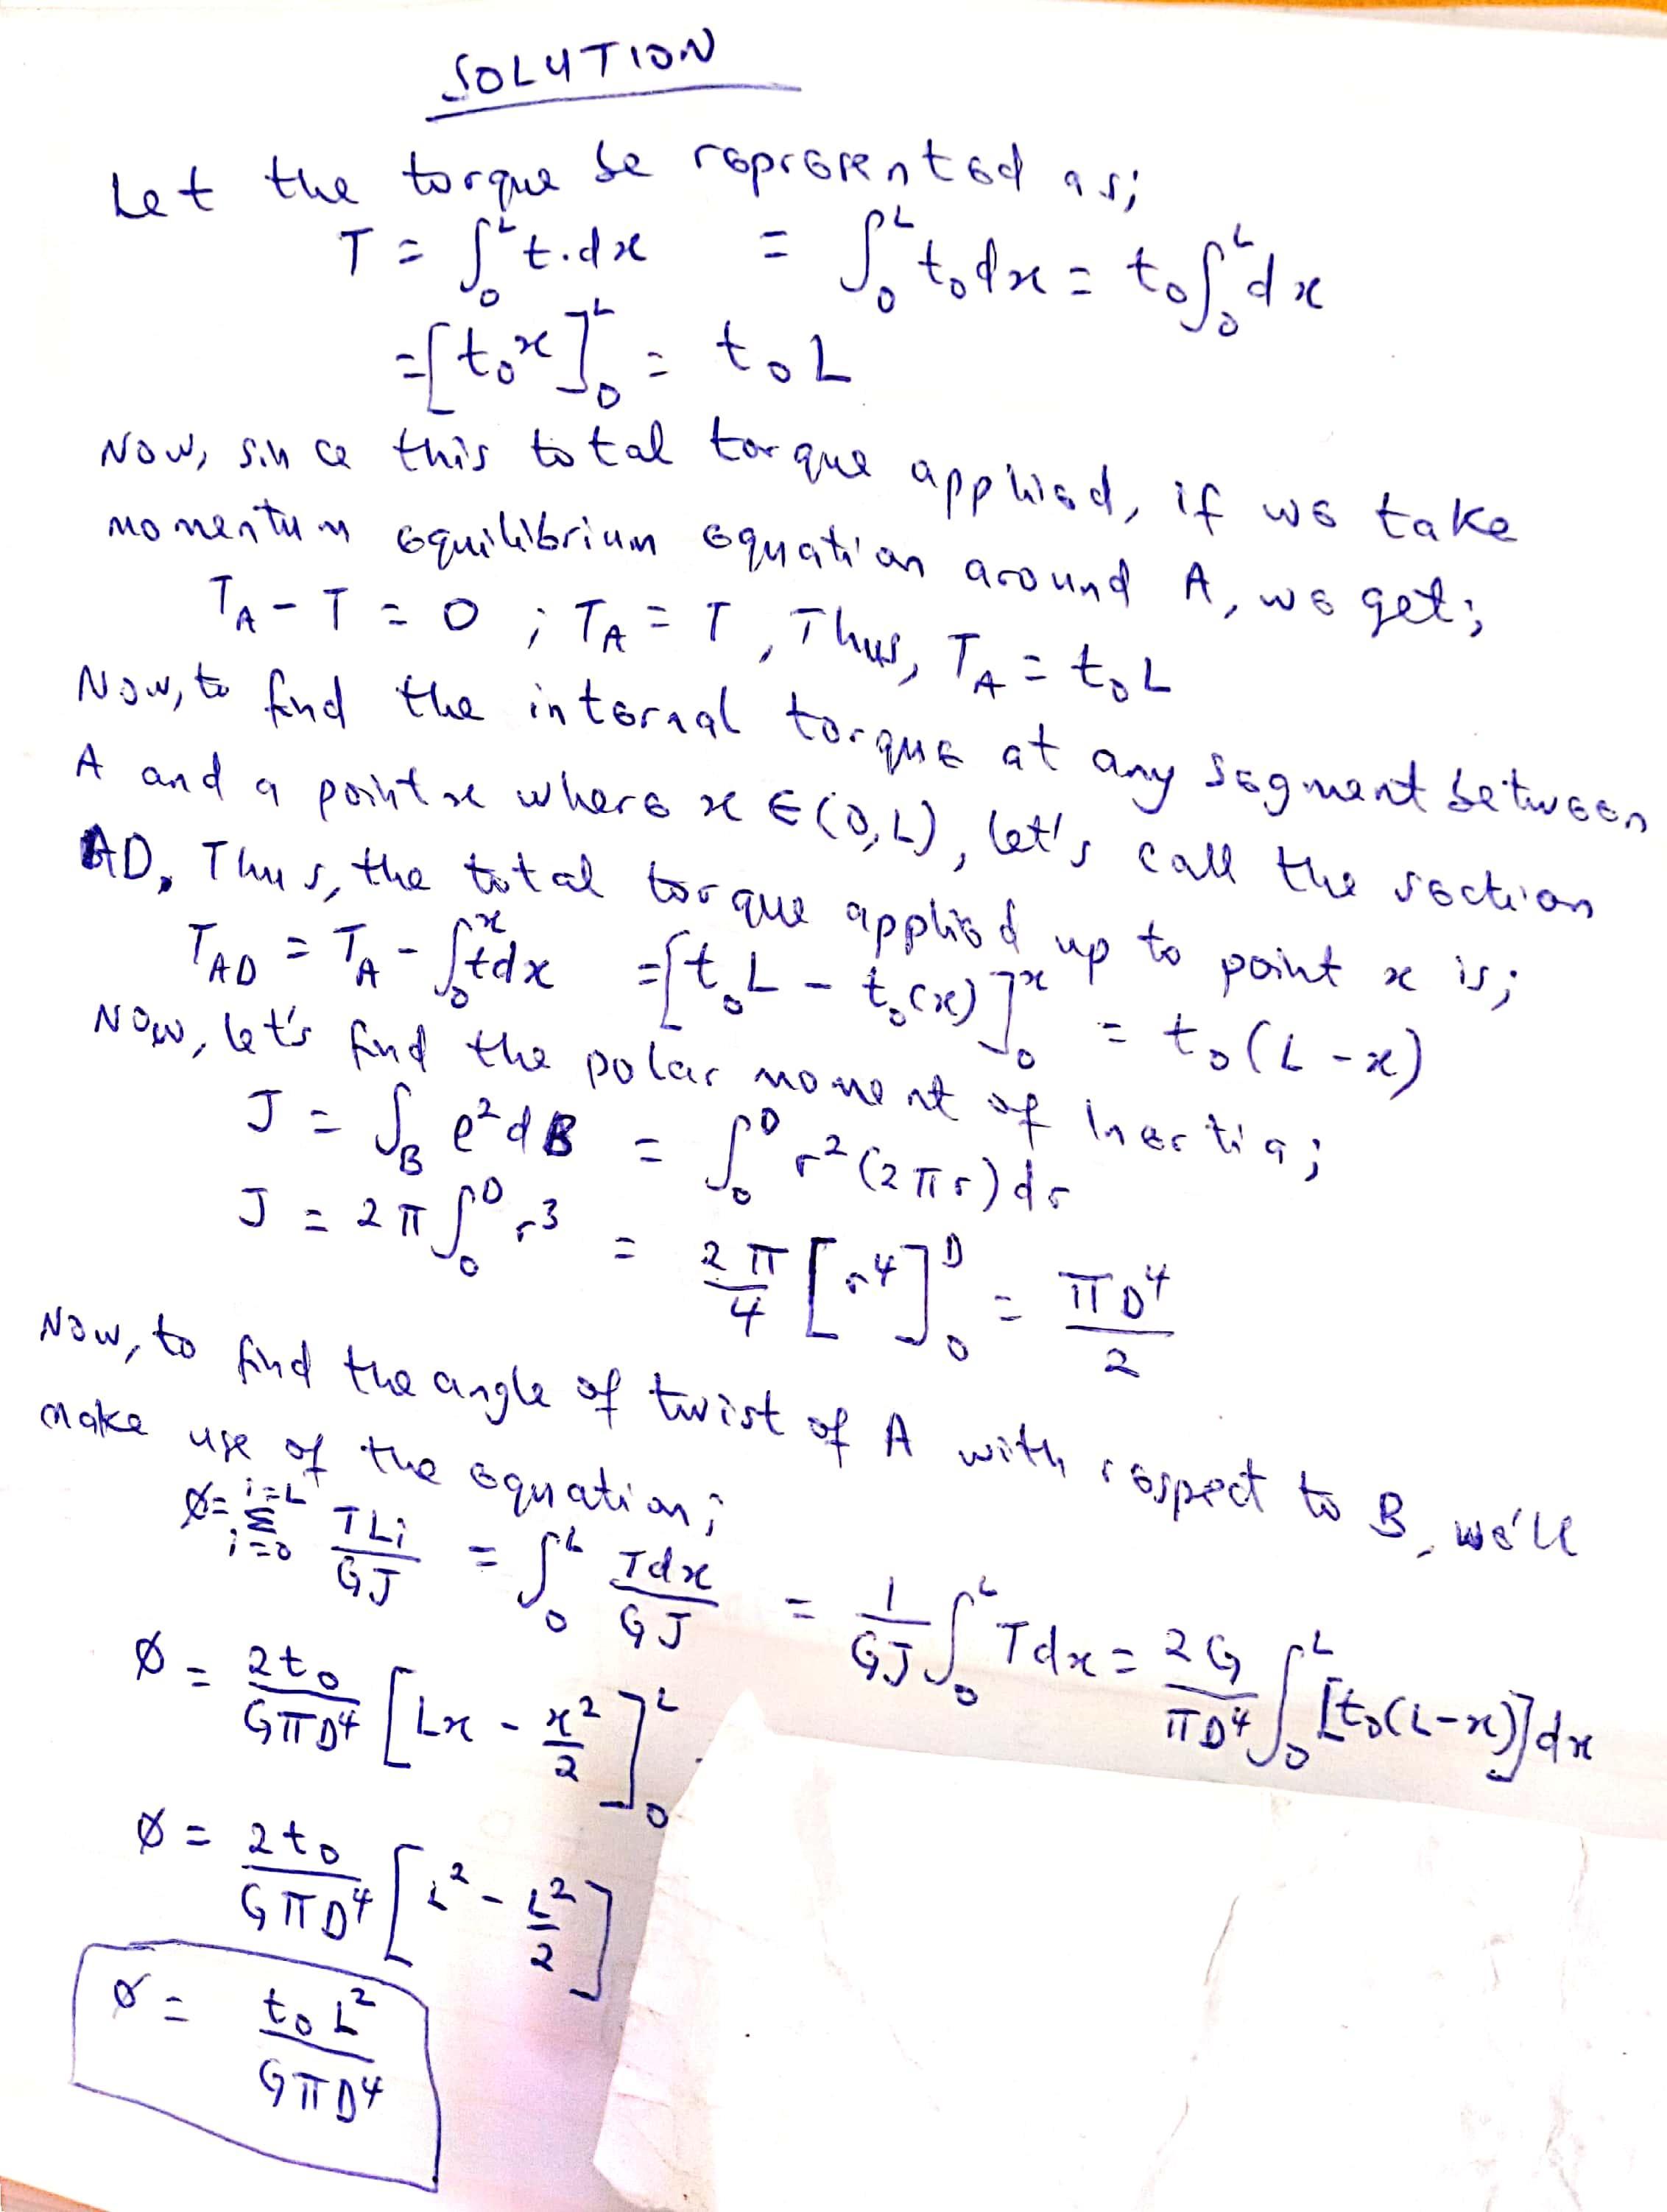 SOLUTION
Let the torque be represented as;
T = ∫₀ᴸ t.dx = ∫₀ᴸ t₀dx = t₀∫₀ᴸdx
=[t₀x]₀ᴸ = t₀L
Now, since this total torque applied, if we take
momentum equilibrium equation around A, we get;
T_A - T = 0 ; T_A = T, Thus, T_A = t₀L
Now, to find the internal torque at any segment between
A and a point x where x ∈ (0, L), let's call the section
AD, Thus, the total torque applied up to point x is;
T_AD = T_A - ∫₀ˣtdx =[t₀L - t₀(x)]₀ˣ = t₀(L-x)
Now, let's find the polar moment of Inertia;
J = ∫_B e²dB = ∫₀ᴰ r²(2πr)dr
J = 2π∫₀ᴰ r³ = 2π/4 [r⁴]₀ᴰ = πD⁴/2
Now, to find the angle of twist of A with respect to B, we'll
make use of the equation;
Ø = Σ_{i=0}^{i=L} TLi/GJ = ∫₀ᴸ Tdx/GJ = 1/GJ ∫₀ᴸ Tdx = 2G/πD⁴ ∫₀ᴸ [t₀(L-x)]dx
Ø = 2t₀/GπD⁴ [Lx - x²/2]₀ᴸ
Ø = 2t₀/GπD⁴ [L² - L²/2]
Ø = t₀L²/GπD⁴